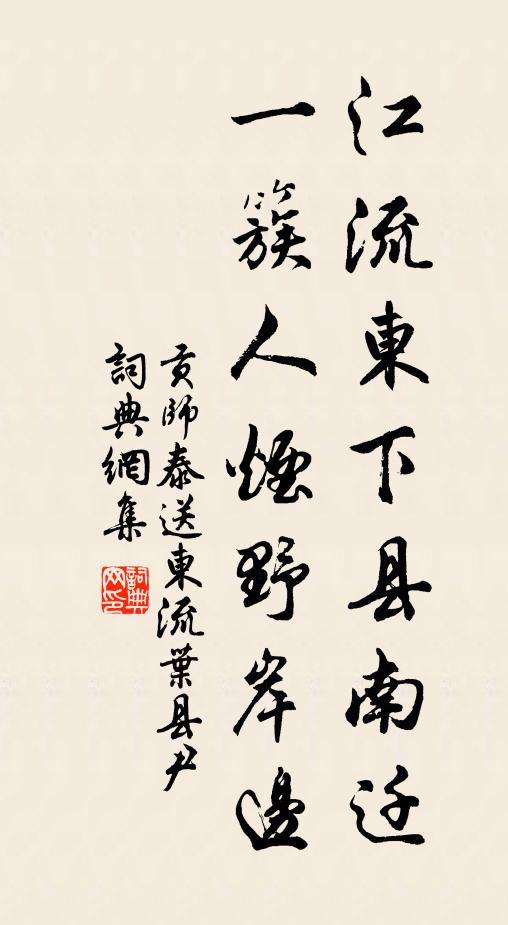 江流東下县南迁
一簇人煙野岸邊
貢師泰送東流葉县尹
詞典網集
詞典網印